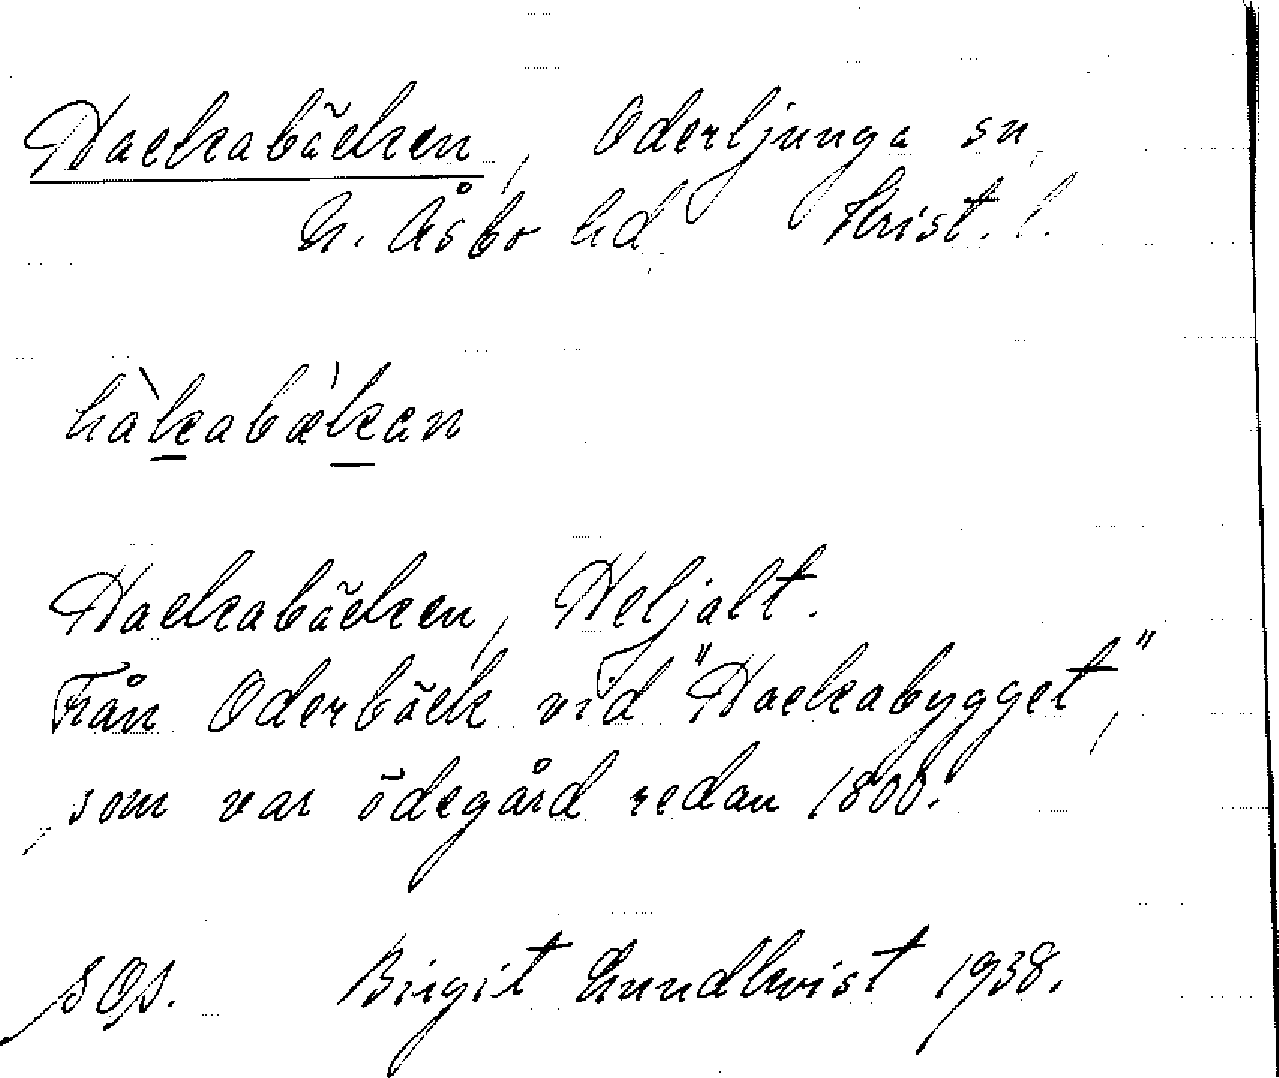 Hackabäcken, Oderljunga sn,
N. Åsbo hd Krist. l.
hàkabækan
Hackabäcken, Heljalt.
Från Oderbäck vid "Hackabygget",
som var ödegård redan 1800.
SOS. Birgit Lundkvist 1938.